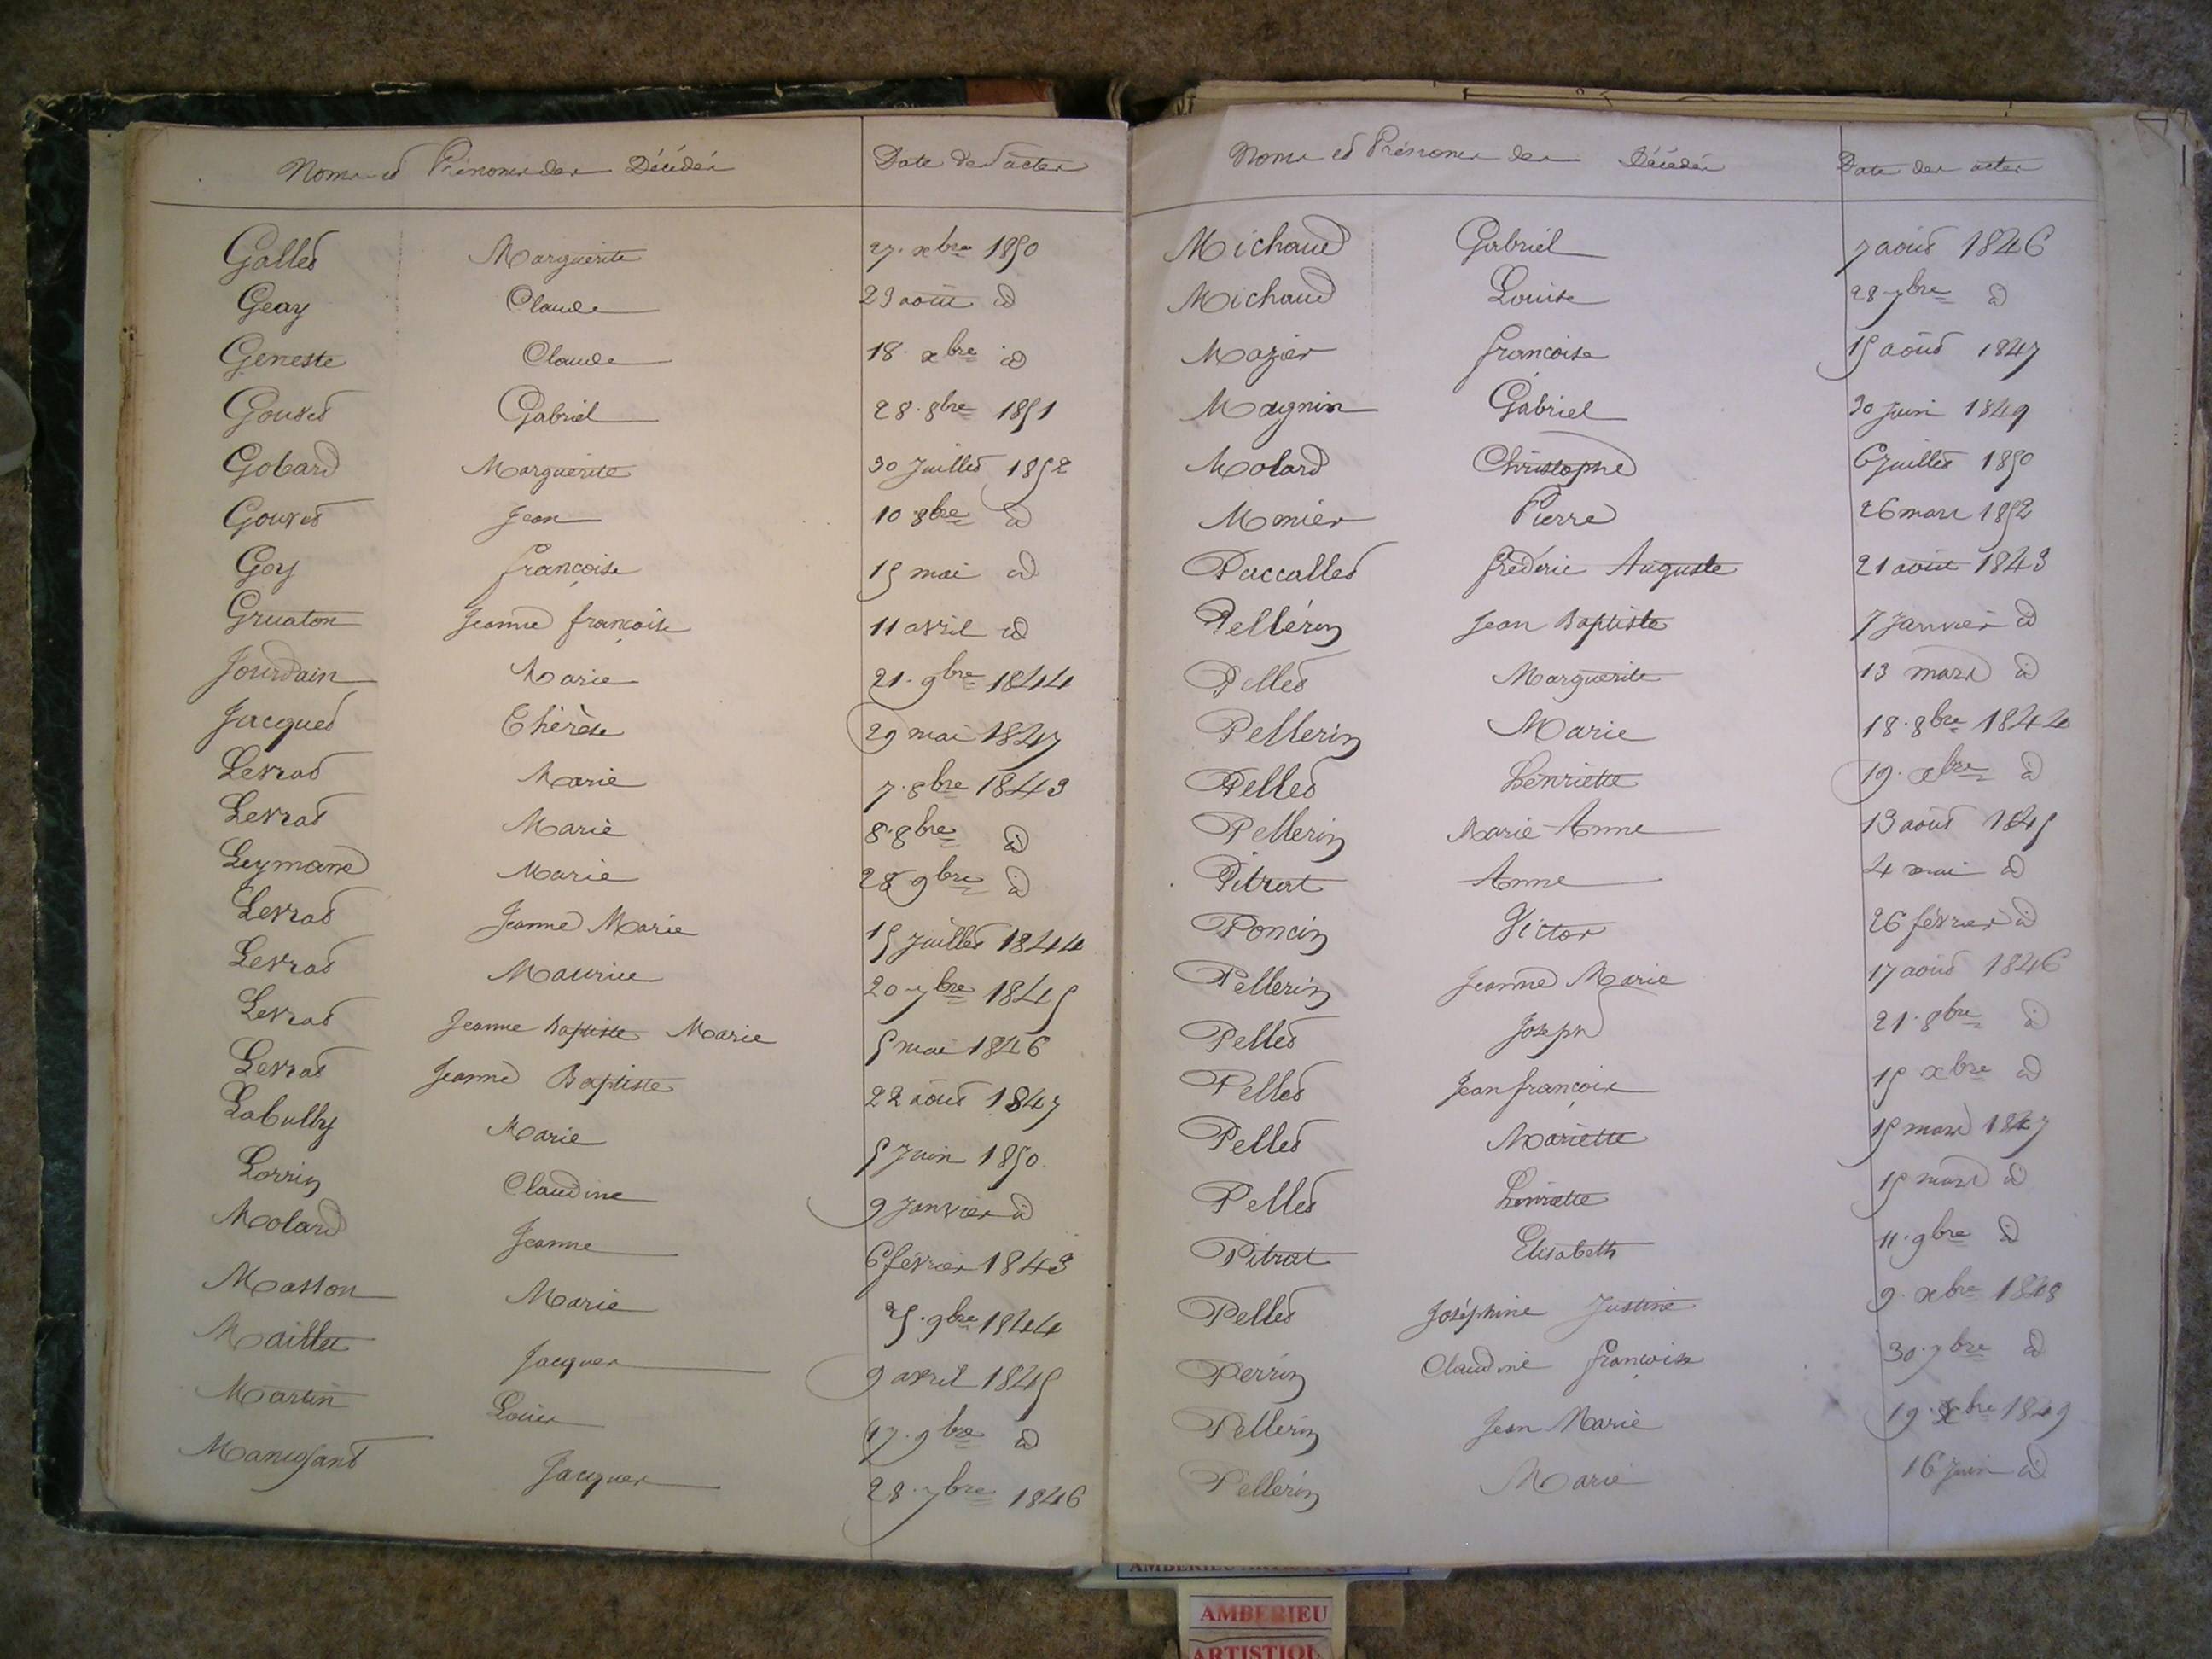 Noms et Prénoms des Décédés Date des actes
Gallet Marguerite 27. xbre 1850
Geay Claude 23 août id
Geneste Claude 18. xbre id
Gouvet Gabriel 28. 8bre 1851
Gobard Marguerite 30 Juillet 1852
Gouvet Jean 10 8bre id
Goy françoise 15 mai id
Gruaton Jeanne françoise 11 avril id
Jourdain Marie 21. 9bre 1844
Jacquet Thérèse 29 mai 1847
Levrat Marie 7. 8bre 1843
Levrat Marie 8. 8bre id
Leymand Marie 28 9bre id
Levrat Jeanne Marie 15 Juillet 1844
Levrat Maurice 20 7bre 1845
Levrat Jeanne baptiste Marie 5 mai 1846
Levrat Jeanne Baptiste 22 août 1847
Labully Marie 5 Juin 1850
Lorrin Claudine 9 Janvier id
Molard Jeanne 6 février 1843
Masson Marie 25. 9bre 1844
Maillet Jacques 9 avril 1845
Martin Louis 17. 9bre id
Jacques 28. 7bre 1846
Noms et Prénoms des Décédés Date des actes
Michaud Gabriel 7 août 1846
Michaud Louise 28 7bre id
Mazier françoise 15 août 1847
Magnin Gabriel 30 Juin 1849
Molard Christophe 6 Juillet 1850
Monier Pierre 26 mars 1852
Paccallet frédéric Auguste 21 août 1843
Pellérin Jean Baptiste 7 Janvier id
Pellet Marguerite 13 mars id
Pellerin Marie 18. 8bre 1844
Pellet henriette 19. xbre id
Pellerin Marie Anne 13 août 1845
Pitrat Anne 4 mai id
Poncin Victor 26 février id
Pellerin Jeanne Marie 17 août 1846
Pellet Joseph 21. 8bre id
Pellet Jean françois 15 xbre id
Pellet Mariette 15 mars 1847
Pellet henriette 15 mars id
Pitrat Elisabeth 11. 9bre id
Pellet Joséphine Justine 9. xbre 1848
Perrin Claudine françoise 30. 7bre id
Pellerin Jean Marie 19. xbre 1849
Pellerin Marie 16 Juin id
AMBERIEU
ARTISTIQU